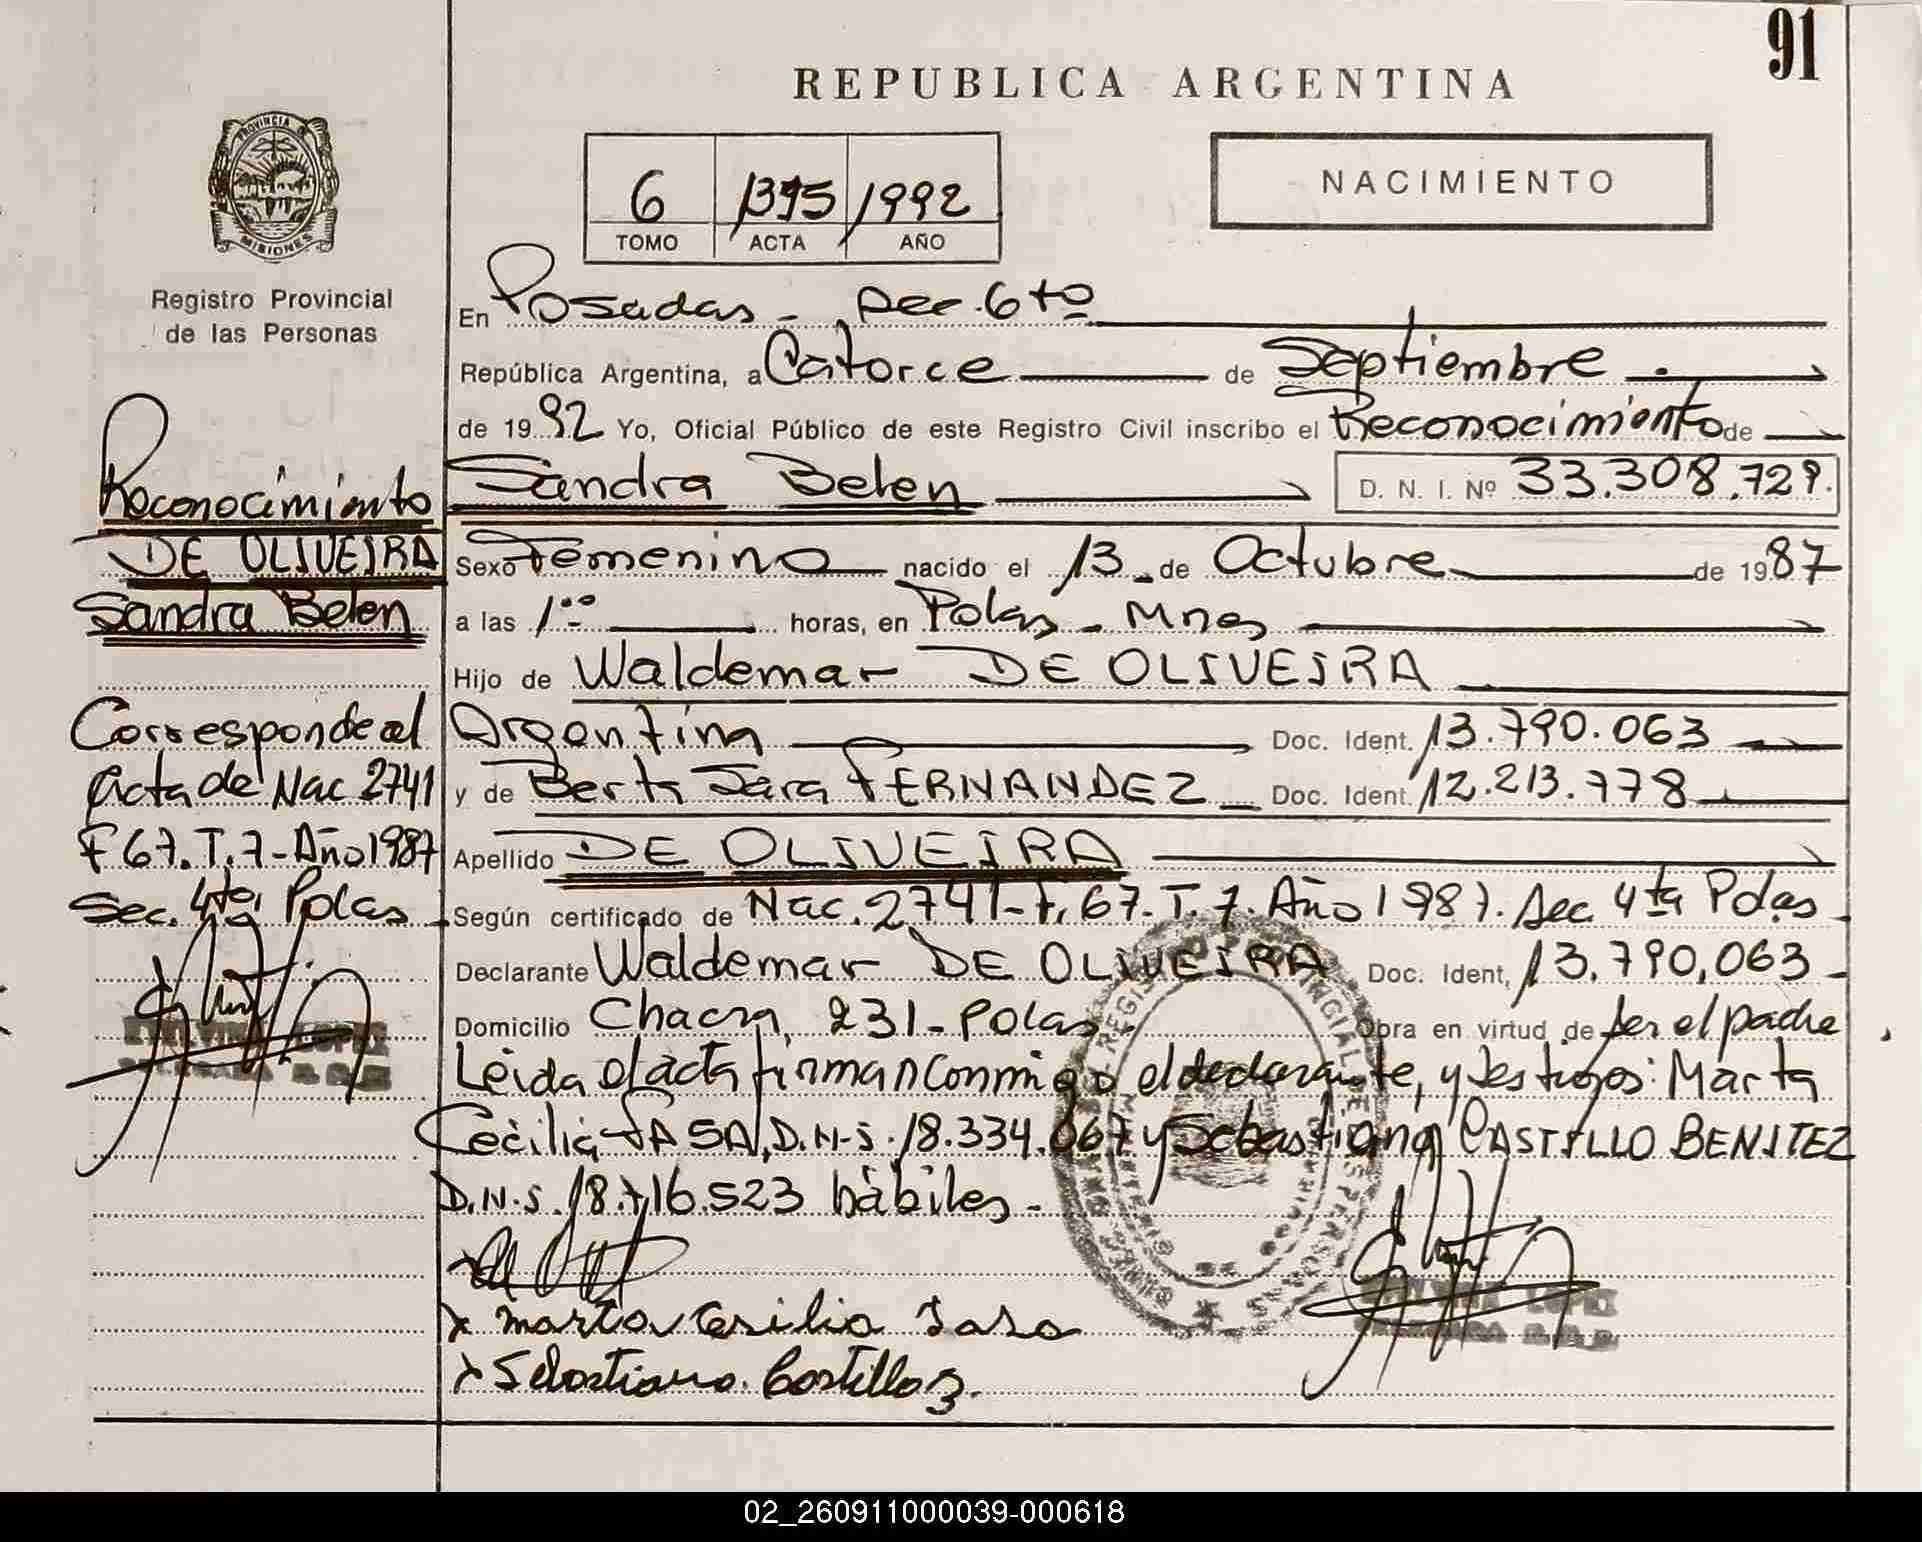 91
REPUBLICA ARGENTINA
PROVINCIA DE
MISIONES
Registro Provincial
de las Personas
6 1395 1992
TOMO ACTA AÑO
NACIMIENTO
En Posadas - sec. 6to
República Argentina, a Catorce de Septiembre.
de 1992 Yo, Oficial Público de este Registro Civil inscribo el Reconocimiento de
Sandra Belen D. N. I. Nº 33.308.729.
Sexo Femenino nacido el 13 de Octubre de 1987
a las 1:00 horas, en Pdas - Mnes
Hijo de Waldemar DE OLIVEIRA
Argentina Doc. Ident. 13.790.063
y de Berta Sara FERNANDEZ Doc. Ident. 12.213.778
Apellido DE OLIVEIRA
Según certificado de Nac. 2741-F. 67-T. 7. Año 1987. Sec 4ta Pdas
Declarante Waldemar DE OLIVEIRA Doc. Ident, 13.790,063
Domicilio Chacra, 231 - Pdas. Obra en virtud de ser el padre
Leida el acta firman conmigo el declarante, y testigos: Marta
Cecilia SASA, D.N.I. 18.334.067 y Sebastiana CASTILLO BENITEZ
D.N.I. 18.716.523 hábiles -
x Marta Cecilia Sasa
x Sebastiana. Castillo B.
Reconocimiento
DE OLIVEIRA
Sandra Belen
Corresponde al
Acta de Nac 2741
F 67. T. 7 - Año 1987
Sec. 4ta, Pdas
02_260911000039-000618